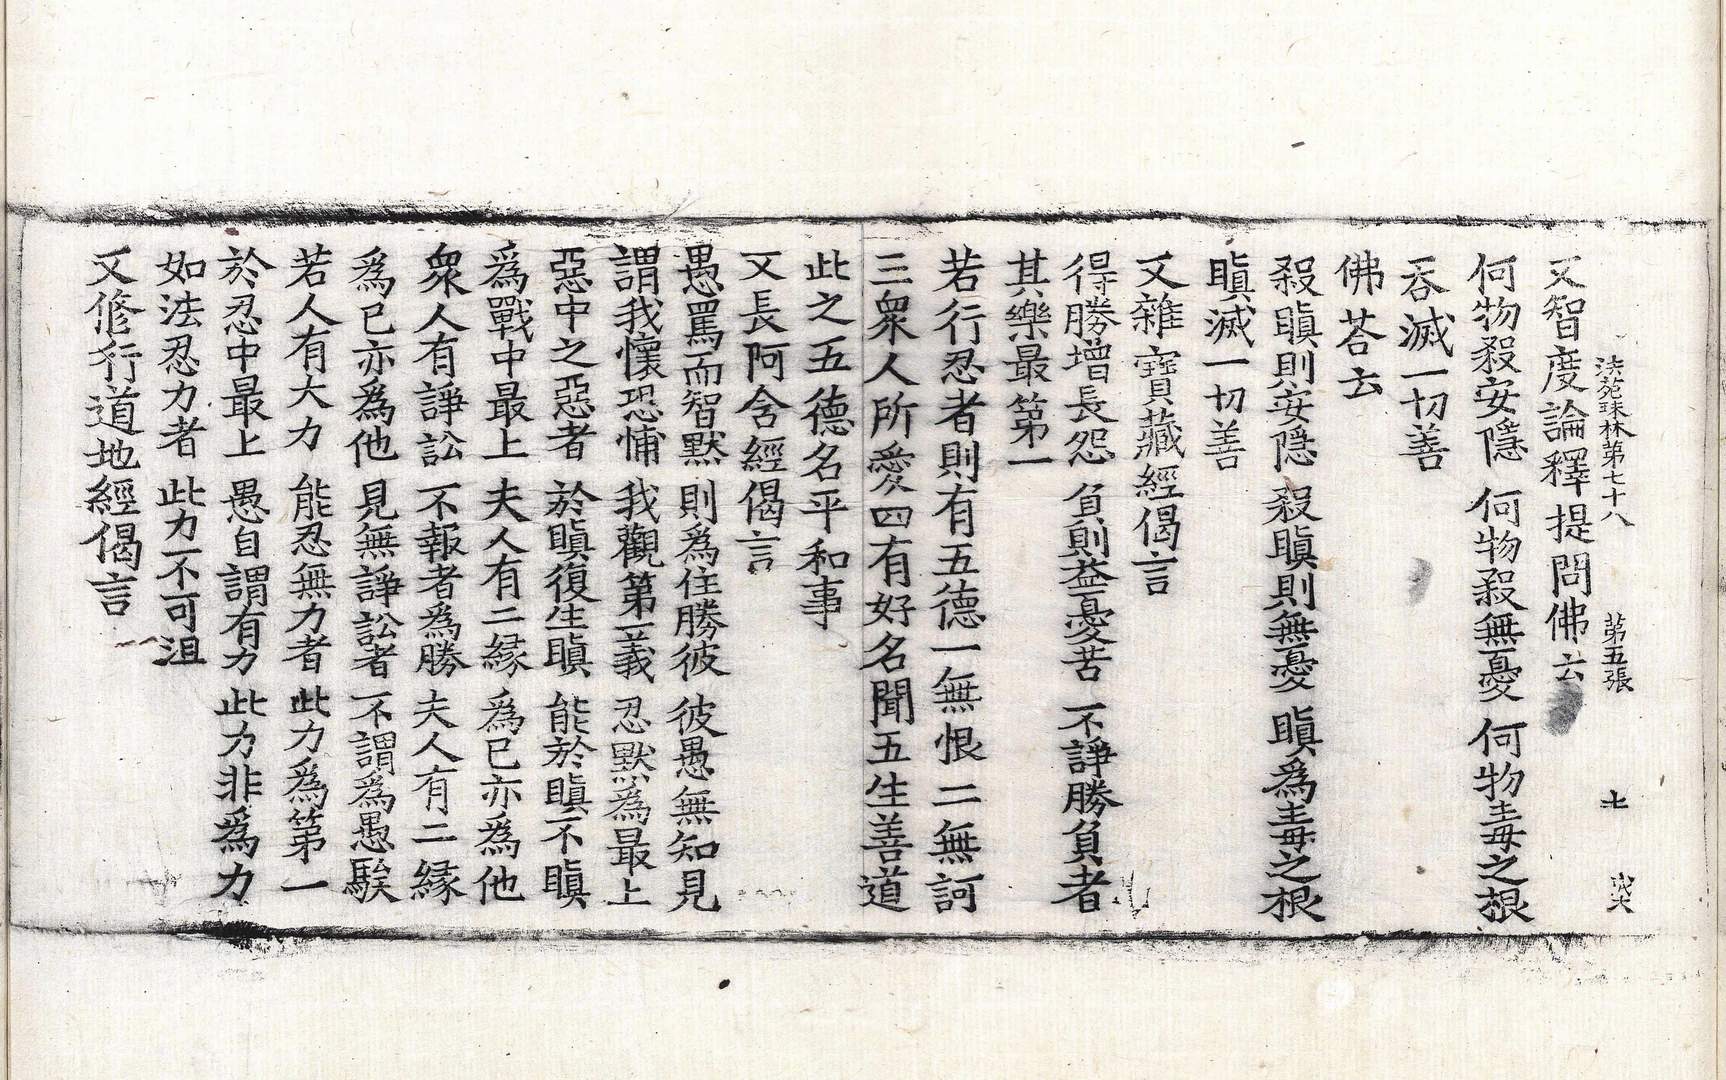 法苑珠林第七十八 第五張
又智度論釋提問佛云
何物殺安隱 何物殺無憂 何物毒之根
吞滅一切善
佛荅云
殺瞋則安隱 殺瞋則無憂 瞋為毒之根
瞋滅一切善
又雜寶藏經偈言
得勝增長怨 負則益憂苦 不諍勝負者
其樂最第一
若行忍者則有五德一無恨二無訶
三衆人所愛四有好名聞五生善道
此之五德名平和事
又長阿含經偈言
愚罵而智默 則為住勝彼 彼愚無知見
謂我懷恐怖 我觀第一義 忍默為最上
惡中之惡者 於瞋復生瞋 能於瞋不瞋
為戰中最上 夫人有二緣 為己亦為他
衆人有諍訟 不報者為勝 夫人有二緣
為己亦為他 見無諍訟者 不謂為愚騃
若人有大力 能忍無力者 此力為第一
於忍中最上 愚自謂有力 此力非為力
如法忍力者 此力不可沮
又修行道地經偈言